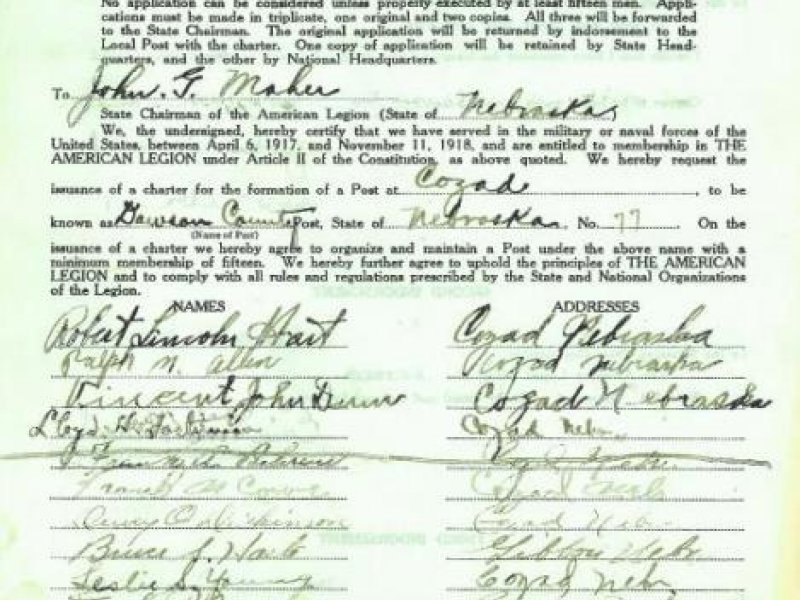 No application can be considered unless properly executed by at least fifteen men. Appli-
cations must be made in triplicate, one original and two copies. All three will be forwarded
to the State Chairman. The original application will be returned by indorsement to the
Local Post with the charter. One copy of application will be retained by State Head-
quarters, and the other by National Headquarters.
To John G. Maher
State Chairman of the American Legion (State of Nebraska)
We, the undersigned, hereby certify that we have served in the military or naval forces of the
United States, between April 6, 1917, and November 11, 1918, and are entitled to membership in THE
AMERICAN LEGION under Article II of the Constitution, as above quoted. We hereby request the
issuance of a charter for the formation of a Post at Cozad, to be
known as Dawson County Post, State of Nebraska, No. 77 On the
(Name of Post)
issuance of a charter we hereby agree to organize and maintain a Post under the above name with a
minimum membership of fifteen. We hereby further agree to uphold the principles of THE AMERICAN
LEGION and to comply with all rules and regulations prescribed by the State and National Organizations
of the Legion.
NAMES ADDRESSES
Robert Lincoln Hart Cozad Nebraska
Ralph M. Allen Cozad Nebraska
Vincent John Dunn Cozad Nebraska
Lloyd H. Cozad Neb.
Frank M. Cozad Neb
Cozad Neb
Bruce S. Gibbon Nebr
Leslie S. Young Cozad Nebr